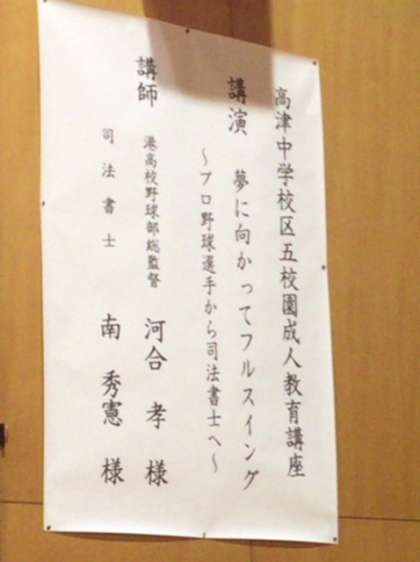 高津中学校区五校園成人教育講座
講演 夢に向かってフルスイング
～プロ野球選手から司法書士へ～
講師 港高校野球部総監督 河合 孝 様
司法書士 南 秀憲 様